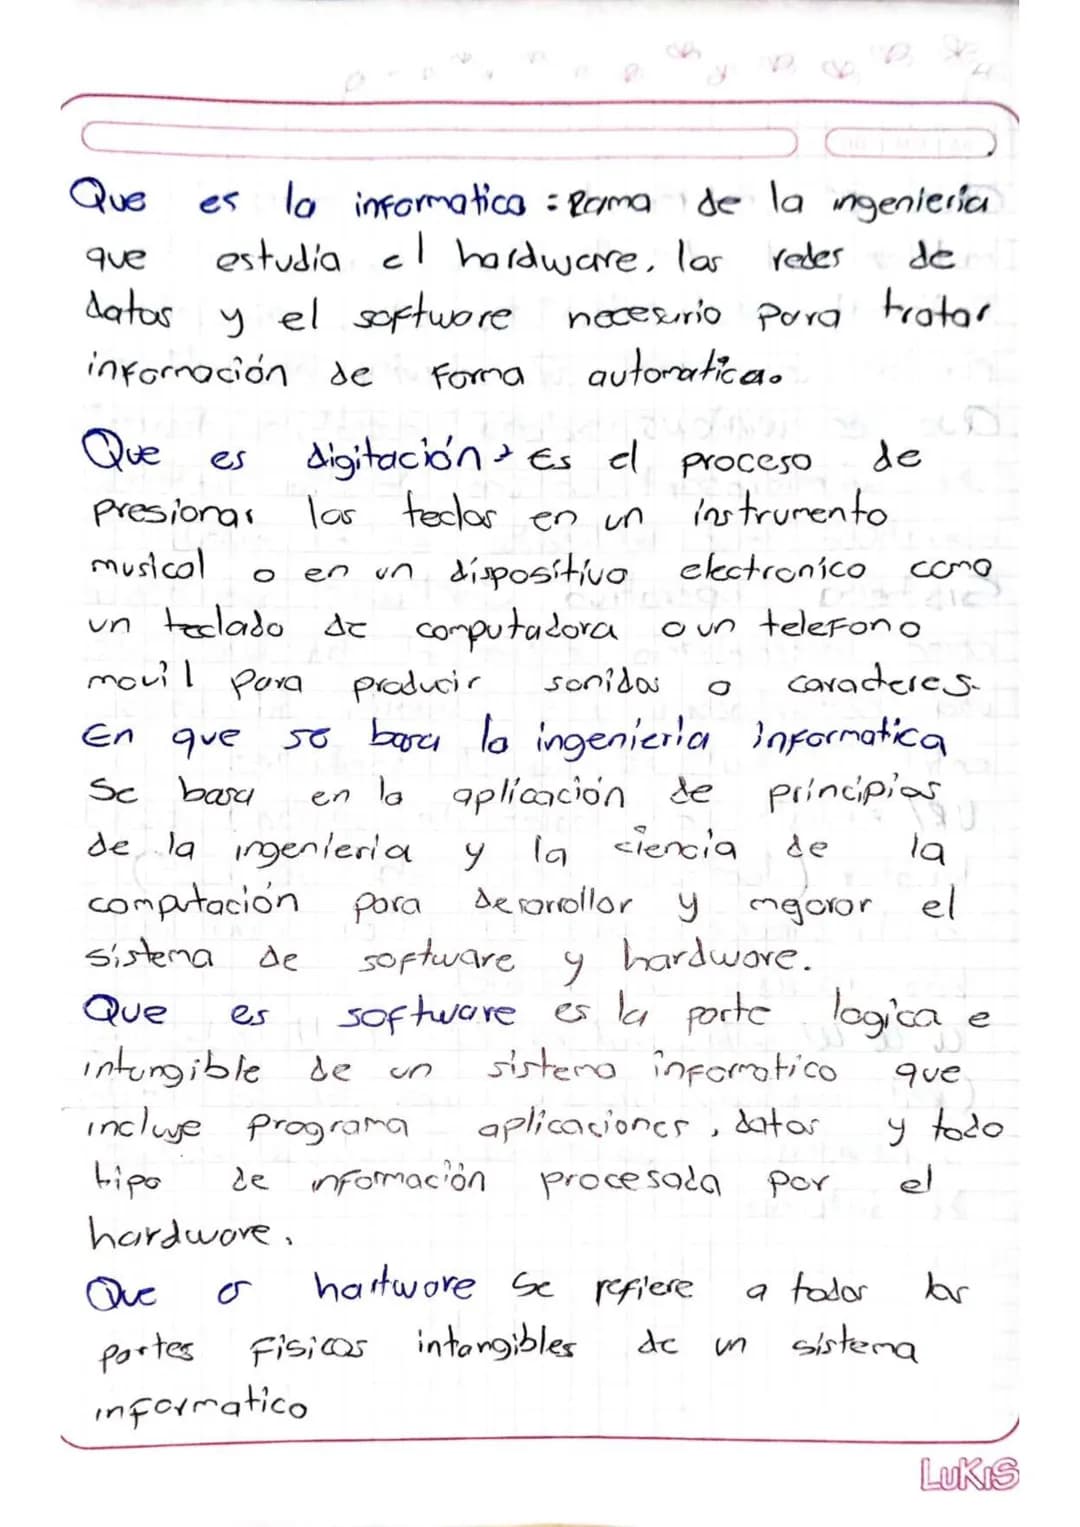 Que es la informatica : Rama de la ingenieria
que estudia el hardware, las redes de
datos y el software necesario para tratar
información de forma automatica.
Que es digitación > Es el proceso de
presionar las teclas en un instrumento
musical o en un dispositivo electronico como
un teclado de computadora o un telefono
movil para producir sonidos o caracteres.
En que se basa la ingenieria informatica
Se basa en la aplicación de principios
de la ingenieria y la ciencia de la
computación para desarrollar y mejorar el
sistema de software y hardware.
Que es software es la parte logica e
intangible de un sistema informatico que
incluye programa aplicaciones, datos y todo
tipo de información procesada por el
hardware.
Que es hartware Se refiere a todas las
partes fisicas intangibles de un sistema
informatico
LUKIS